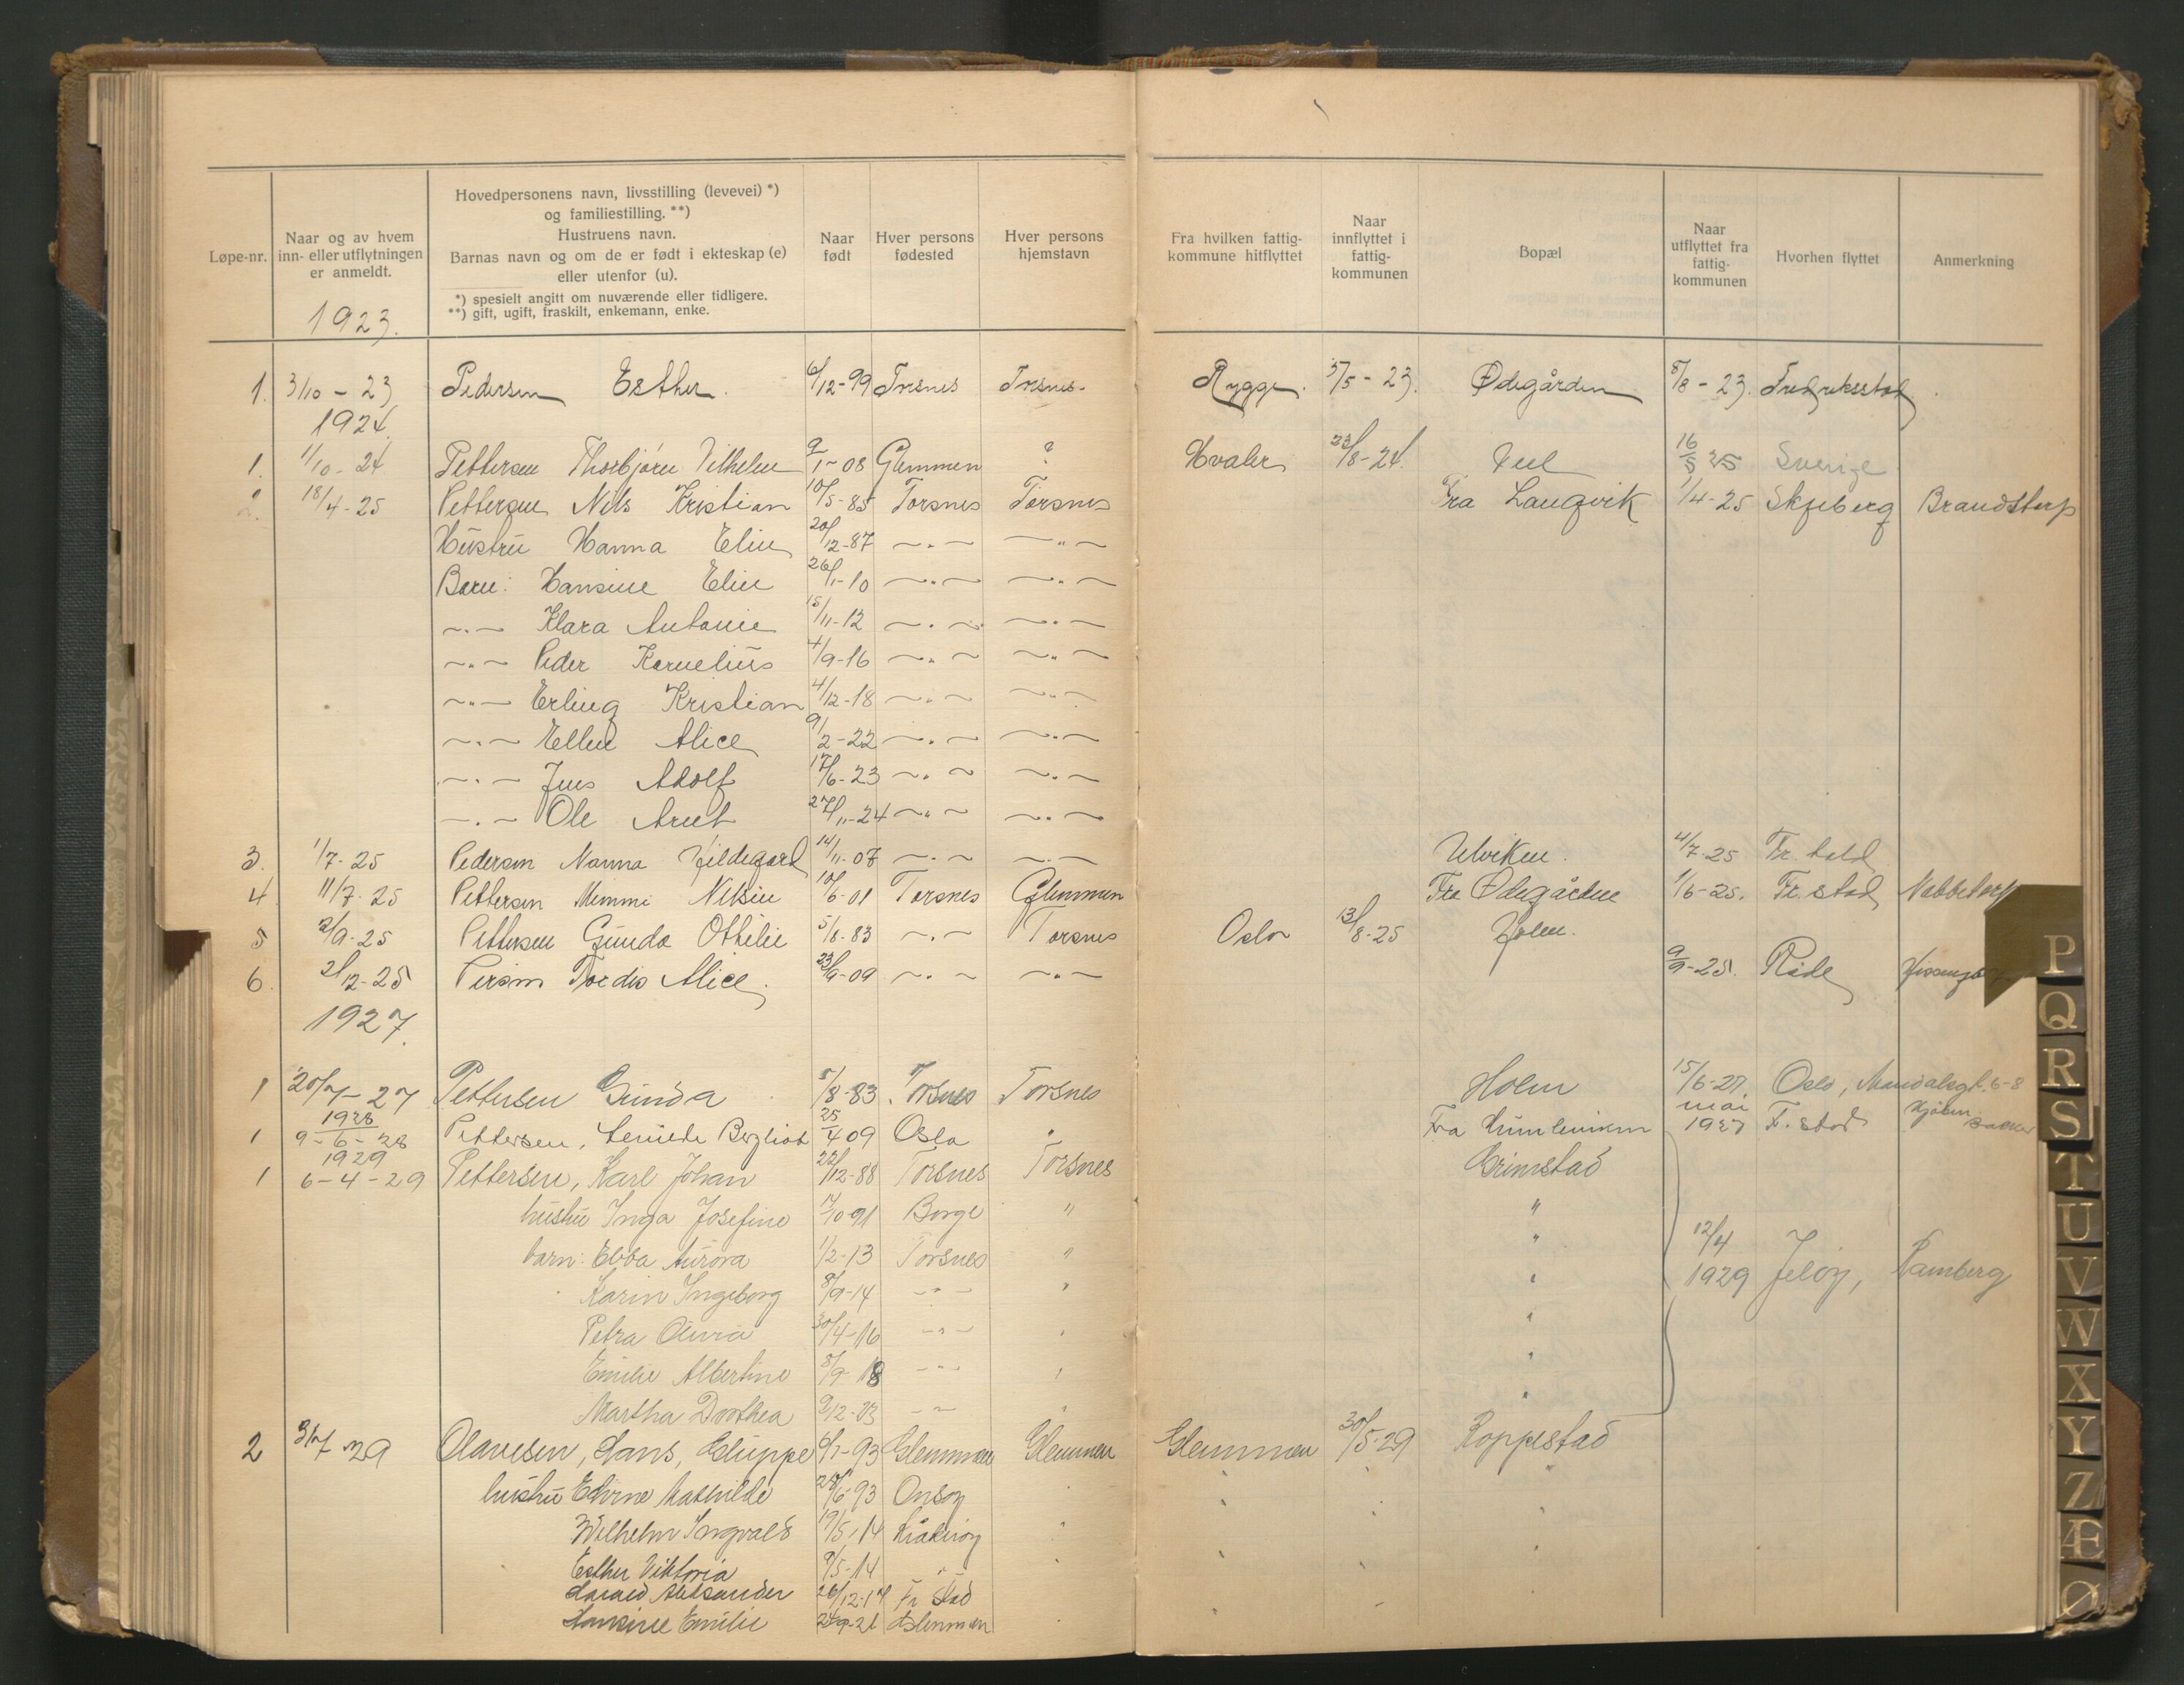 Løpe-nr.
Naar og av hvem inn- eller utflytningen er anmeldt.
Hovedpersonens navn, livsstilling (levevei) *)
og familiestilling. **)
Hustruens navn.
Barnas navn og om de er født i ekteskap (e)
eller utenfor (u).
*) spesielt angitt om nuværende eller tidligere.
**) gift, ugift, fraskilt, enkemann, enke.
Naar født
Hver persons fødested
Hver persons hjemstavn
Fra hvilken fattigkommune hitflyttet
Naar innflyttet i fattigkommunen
Bopæl
Naar utflyttet fra fattigkommunen
Hvorhen flyttet
Anmerkning
1923.
1. 3/10 - 23 Pedersen Esther. 6/12-99 Torsnes Torsnes. Rygge. 5/5 - 23. Ødegården 8/8 - 23. Fredriksstad
1924.
1. 1/10 - 24 Pettersen Thorbjørn Vilhelm 9/1-08 Glemmen ? Hvaler 23/8-24. Vel 16/5 25 Sverige
2. 18/4-25 Pettersen Nils Kristian 10/5-85 Torsnes Torsnes Fra Langvik 1/4-25 Skjeberg Brandstorp
Hustru Hanna Elin 20/12-87 -"- -"-
Barn: Hansine Elin 26/1-10 -"- -"-
-"- Klara Antonie 15/11-12 -"- -"-
-"- Peder Kornelius 4/9-16 -"- -"-
-"- Erling Kristian 4/12-18 -"- -"-
-"- Ellen Alice 9/2-22 -"- -"-
-"- Jens Adolf 17/6-23 -"- -"-
-"- Ole Arnt 27/11-24 -"- -"-
3. 1/7-25 Pedersen Nanna Hildegard 14/11-07 -"- -"- Utviken. 4/7-25 Fr. hald
4 11/7-25 Pettersen Mimmi Nilsin 10/6-01 Torsnes Glemmen Fra Ødegården 1/6-25. Fr. stad Nabbetorp
5 2/9-25 Pettersen Gunda Othilie 5/8-83 -"- Torsnes Oslo 13/8-25 Holm.
6. 2/12-25 Tordis Alice. 23/9-09 -"- -"- 9/9-25. Råde
1927.
1 20/7-27 Pettersen Gunda 5/8-83 Torsnes Torsnes Holm 15/6-27. Oslo, Mandalsgt. 6-8
1928
1 9-6-28 Pettersen, Bergliot 25/4 09 Oslo " Fra mai 1927 F. stad
1929
1 6-4-29 Pettersen, Karl Johan 22/12-88 Torsnes Torsnes Grimstad
hustru Inga Josefine 17/10-91 Borge " "
barn: Ebba Aurora 1/2-13 Torsnes " " 12/4 1929 Jeløy, Ramberg
Karin Ingeborg 8/9-14 -"- " "
Petra Olivia 30/4-16 -"- " "
Emilie Albertine 8/9-18 -"- " "
Martha Dorthea 9/12-23 -"- " "
2 31/7-29 Olavesen, Hans, Gluppe 6/1-93 Glemmen Glemmen Glemmen 30/5-29 Roppestad
hustru Edvine Mathilde 28/6-93 Onsøy " " " "
Wilhelm Ingvald 19/5-14 Kråkerøy
Esther Viktoria 9/5-14 "
Harald Aleksander 26/12-17 Fr stad
Hansine Emilie 24/9-21 Glemmen
P
Q
R
S
T
U
V
W
X
Y
Z
Æ
Ø